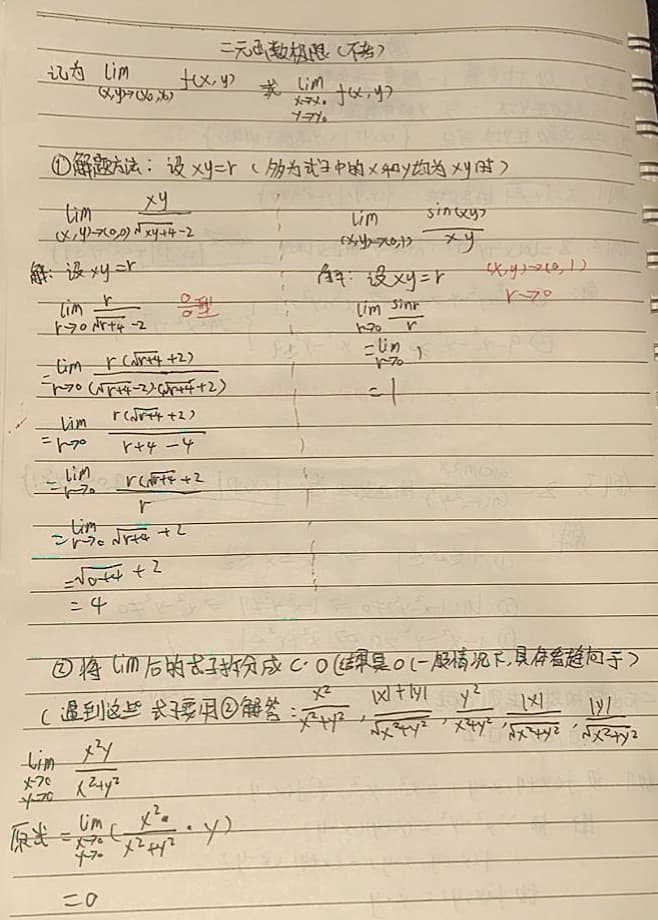 二元函数极限(不考)
记为 lim (x,y)→(x₀,y₀) f(x,y) 或 lim x→x₀ y→y₀ f(x,y)
①解题方法:设xy=r(仅为式子中的x和y均为xy时)
lim (x,y)→(0,0) xy/(√(xy+4)-2)
解:设xy=r
lim r→0 r/(√(r+4)-2) 0/0型
=lim r→0 r(√(r+4)+2)/((√(r+4)-2)(√(r+4)+2))
=lim r→0 r(√(r+4)+2)/(r+4-4)
=lim r→0 r(√(r+4)+2/r
=lim r→0 √(r+4)+2
=√(0+4)+2
=4
lim (x,y)→(0,1) sin(xy)/xy
解:设xy=r (x,y)→(0,1)
r→0
lim r→0 sinr/r
=lim r→0 1
=1
②将lim后的式子拆分成C·0(结果是0(一般情况下,具体看趋向于)
(遇到这些式子要用②解答:x²/(x²+y²),(|x|+|y|)/√(x²+y²),y²/(x²+y²),|x|/√(x²+y²),|y|/√(x²+y²)
lim x→0 y→0 x²y/(x²+y²)
原式=lim x→0 y→0 (x²/(x²+y²)·y)
=0